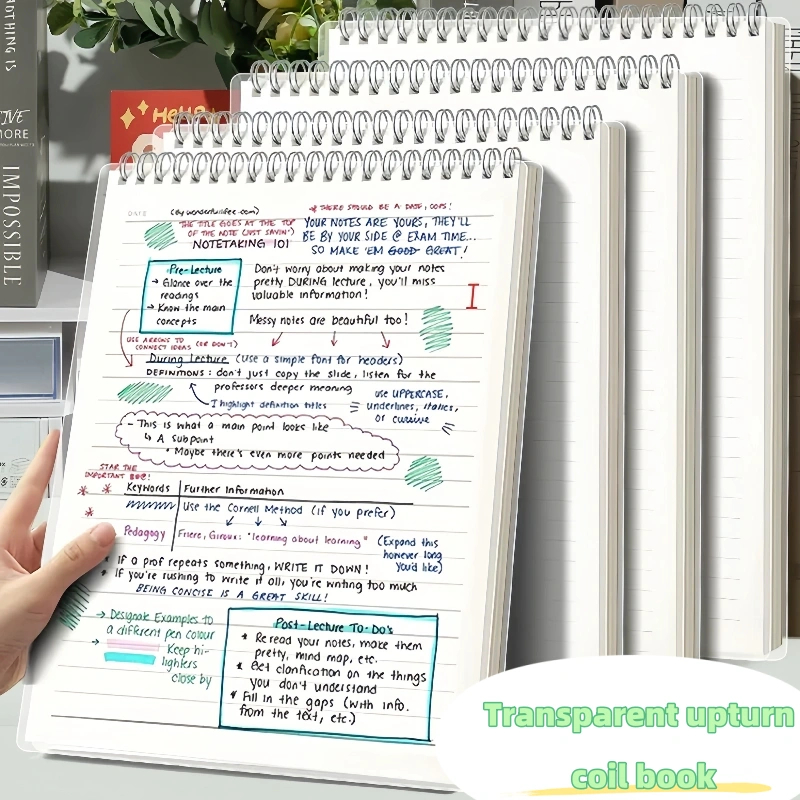 DATE
(By wonderfulifee.com)
* THERE SHOULD BE A DATE, OOPS!
THE TITLE GOES AT THE TOP
OF THE NOTE (JUST SAYIN')
NOTETAKING 101
YOUR NOTES ARE YOURS, THEY'LL
BE BY YOUR SIDE @ EXAM TIME...
SO MAKE 'EM GOOD GREAT!
Pre-Lecture
→ Glance over the
readings
→ Know the main
concepts
Don't worry about making your notes
pretty DURING lecture, you'll miss
valuable information!
Messy notes are beautiful too!
USE ARROWS TO
CONNECT IDEAS (OR DON'T)
During Lecture (Use a simple font for headers)
DEFINITIONS: don't just copy the slide, listen for the
professors deeper meaning
I highlight definition titles
use UPPERCASE,
underlines, italics,
or cursive
- This is what a main point looks like
↳ A subpoint
• Maybe there's even more points needed
STAR THE
IMPORTANT
* * Keywords Further Information
Use the Cornell Method (if you prefer)
*
Pedagogy Friere, Giroux: "learning about learning"
(Expand this
however long
you'd like)
• If a prof repeats something, WRITE IT DOWN!
• If you're rushing to write it all, you're writing too much
BEING CONCISE IS A GREAT SKILL!
→ Designate Examples to
a different pen colour
→ Keep hi-
lighters
close by
Post-Lecture To-Do's
* Reread your notes, make them
pretty, mind map, etc.
* Get clarification on the things
you don't understand
* Fill in the gaps (with info.
from the text, etc.)
Transparent upturn
coil book
IMPOSSIBLE
MORE